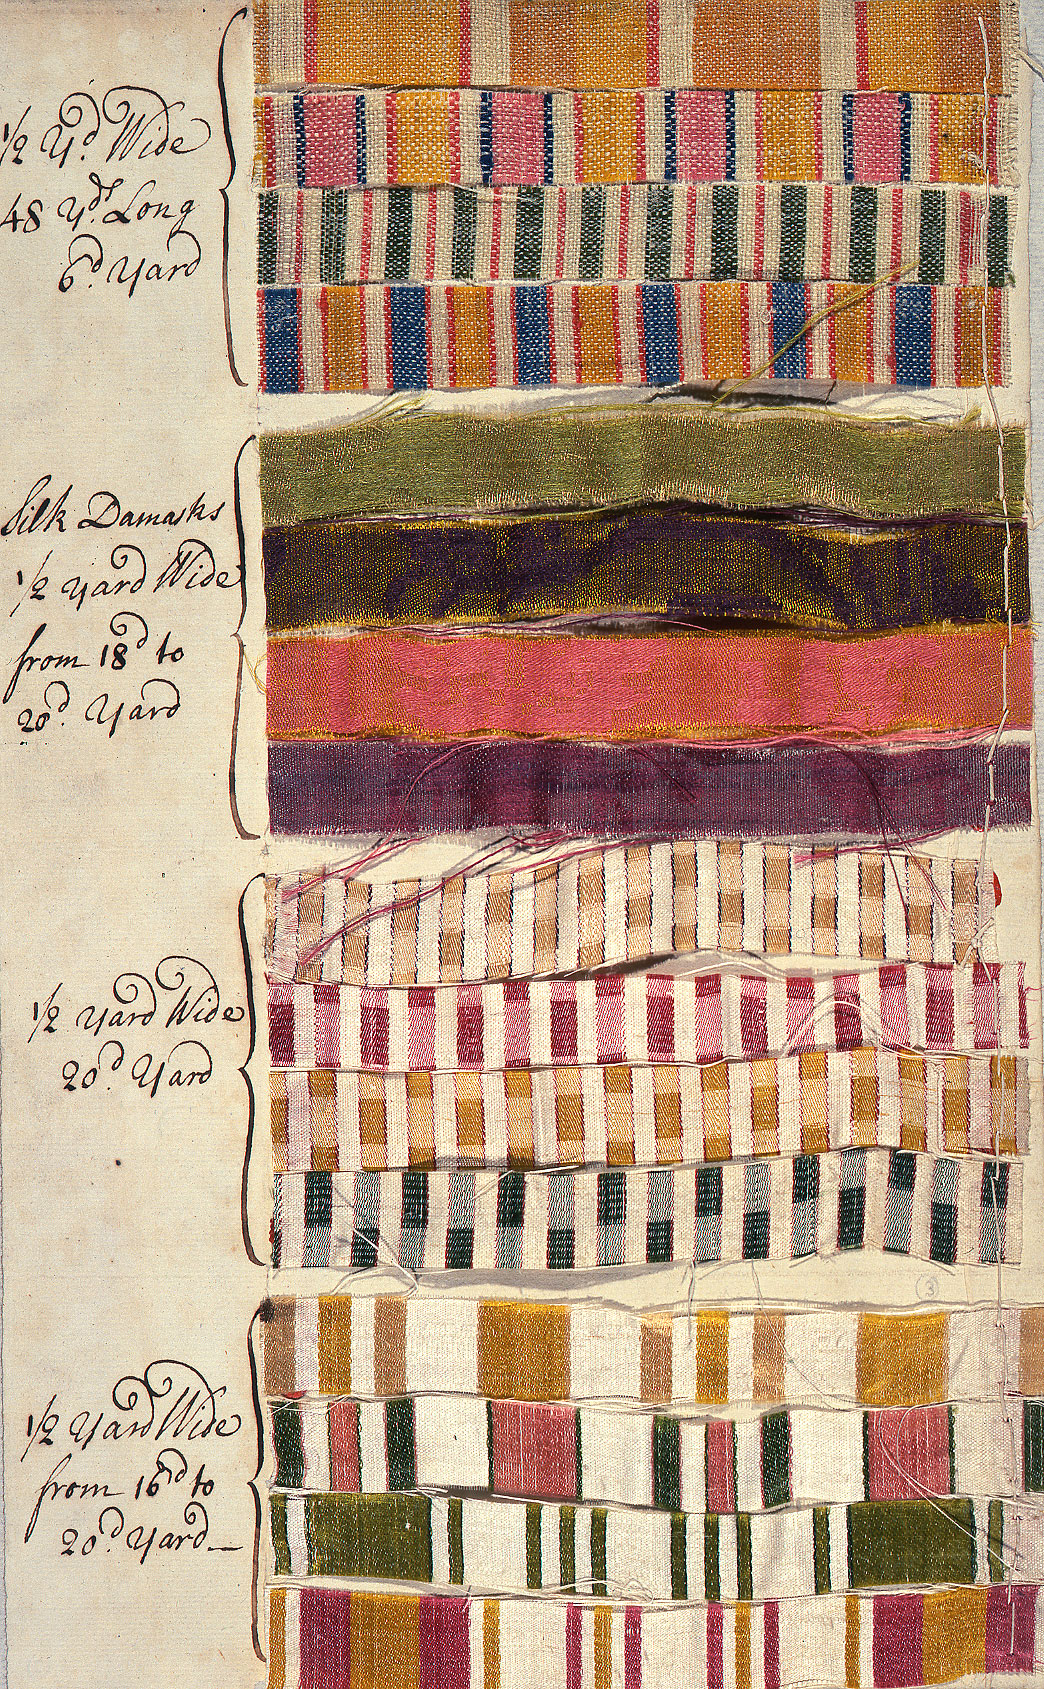 1/2 Yd. Wide
48 Yds. Long
6d. Yard
Silk Damasks
1/2 Yard Wide
from 18d to
20d. Yard
1/2 Yard Wide
20d Yard
3
1/2 Yard Wide
from 16d to
20d Yard